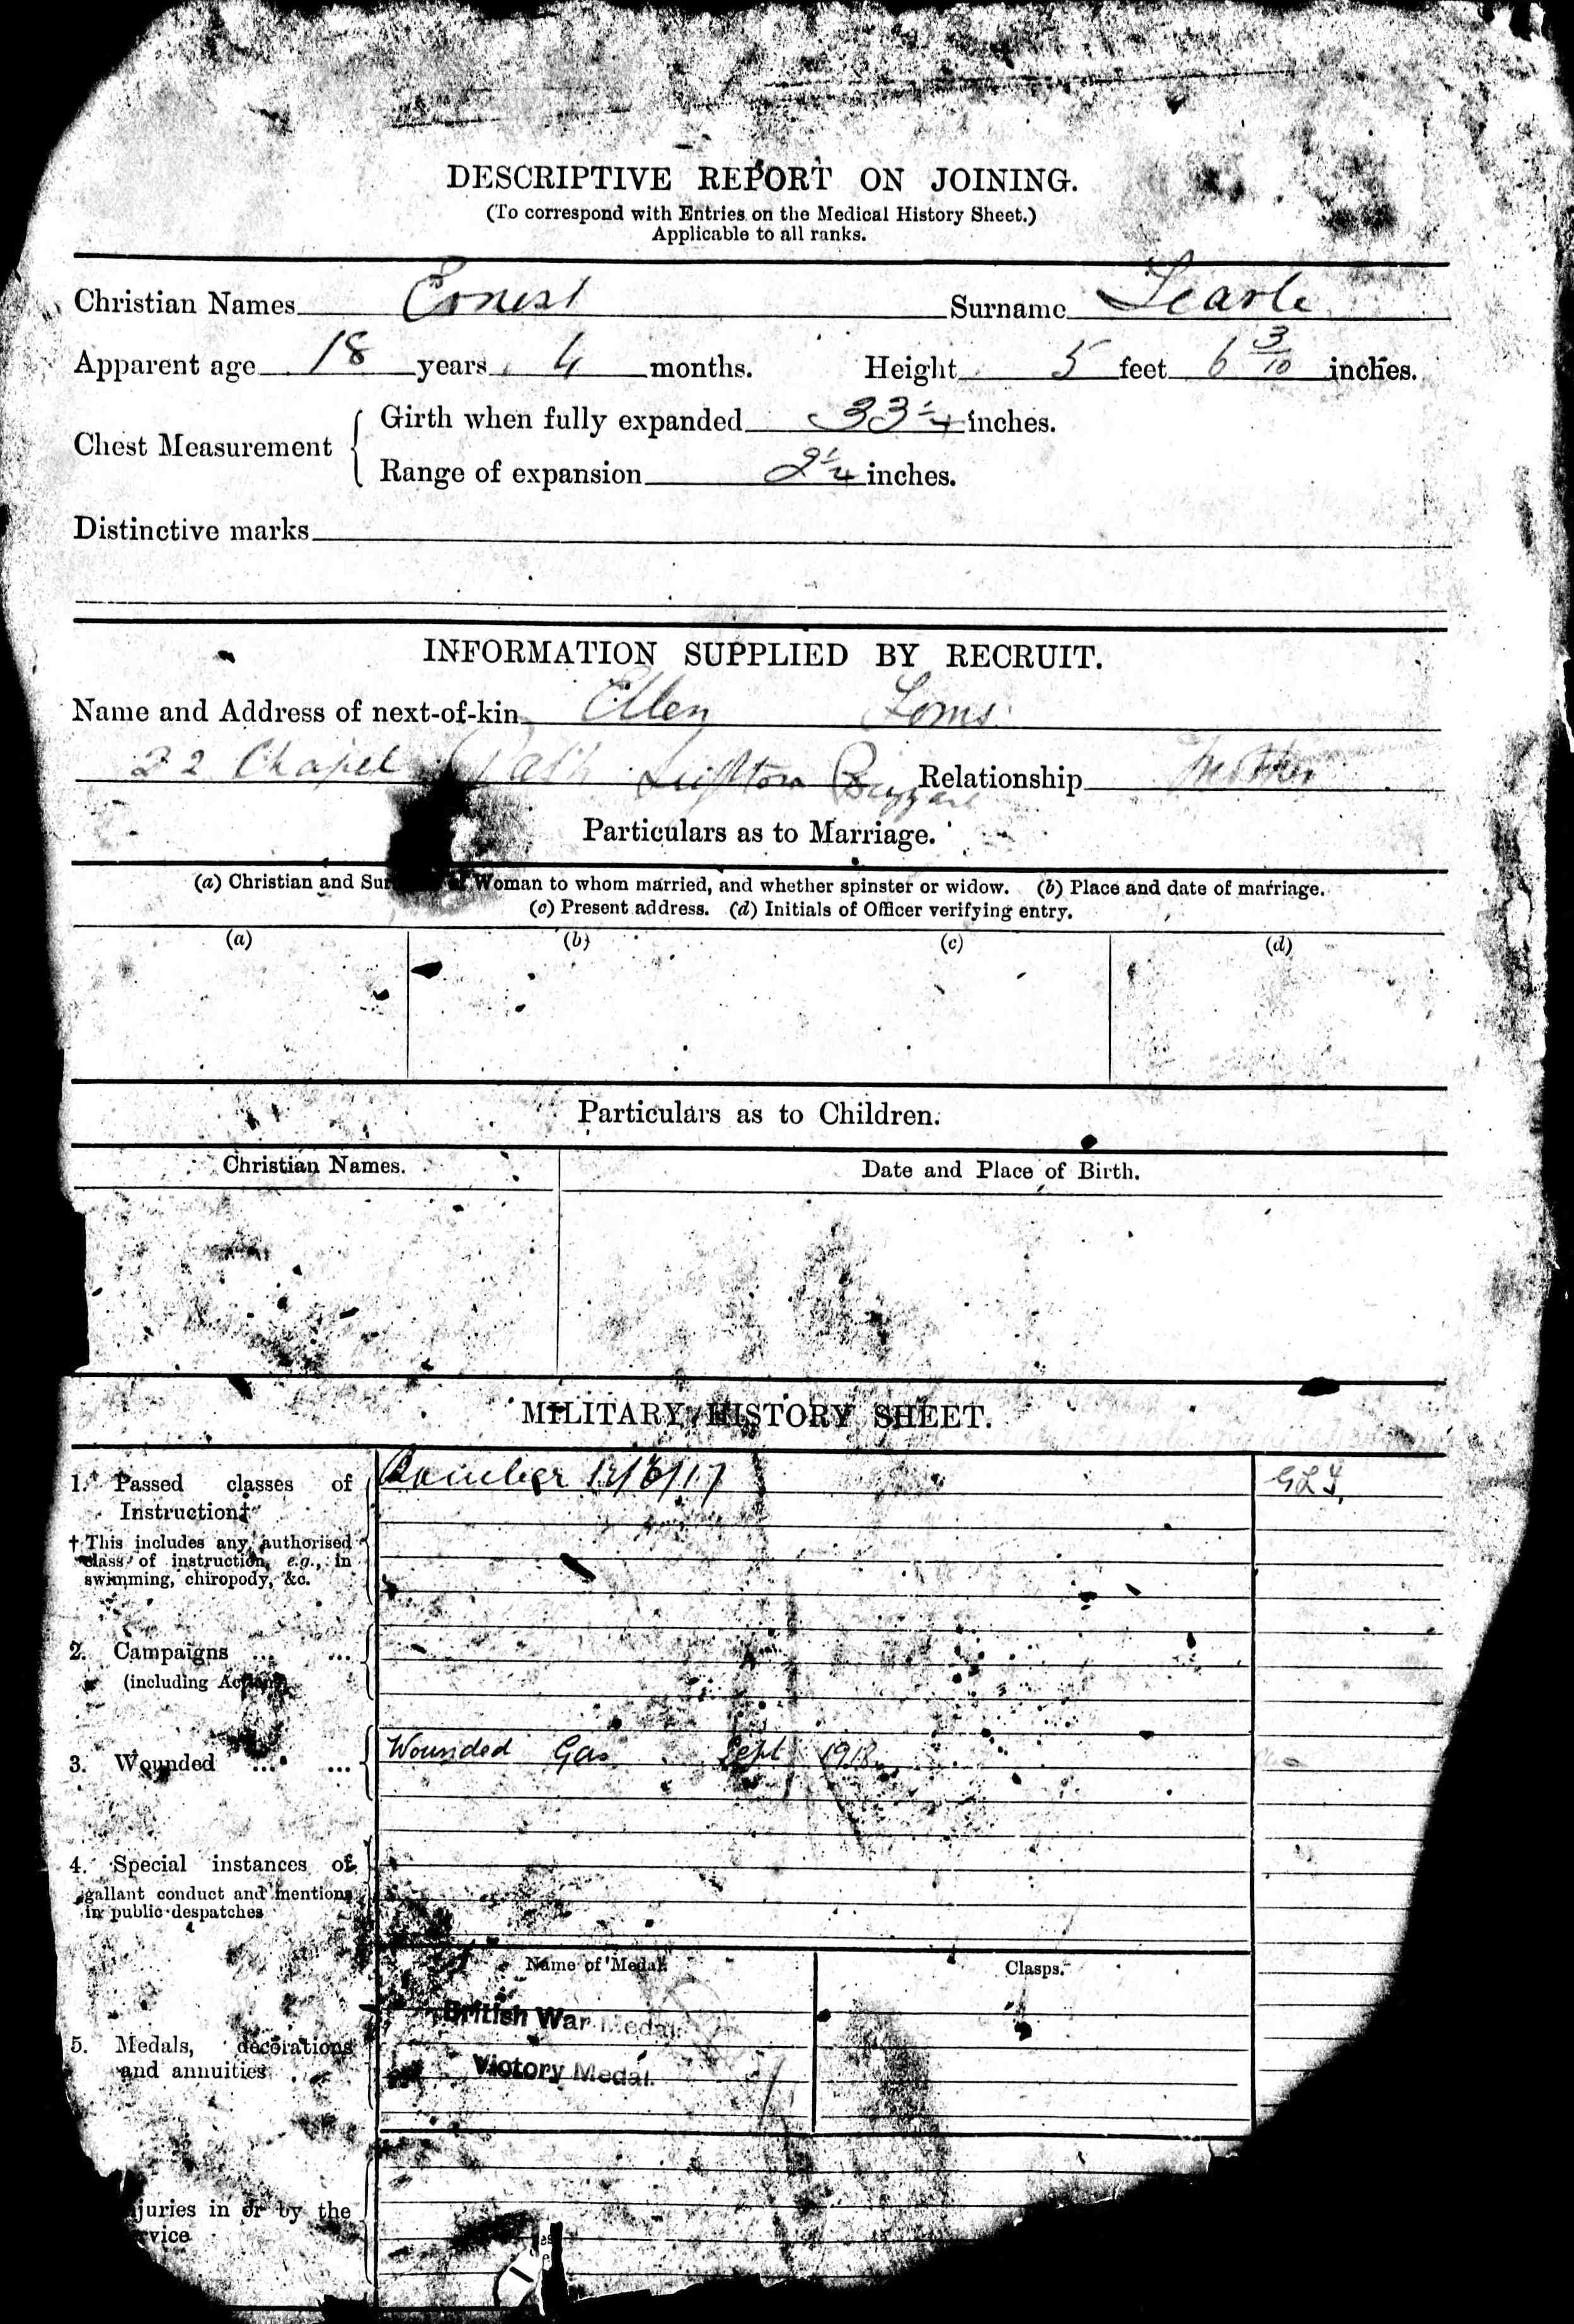 DESCRIPTIVE REPORT ON JOINING.
(To correspond with Entries on the Medical History Sheet.)
Applicable to all ranks.
Christian Names Ernest Surname Searle
Apparent age 18 years 4 months. Height 5 feet 6 3/10 inches.
Chest Measurement { Girth when fully expanded 33 1/4 inches.
Range of expansion 2 1/4 inches.
Distinctive marks
INFORMATION SUPPLIED BY RECRUIT.
Name and Address of next-of-kin Ellen
22 Chapel Path Leighton Buzzard Relationship Mother
Particulars as to Marriage.
(a) Christian and Woman to whom married, and whether spinster or widow. (b) Place and date of marriage.
(c) Present address. (d) Initials of Officer verifying entry.
(a) (b) (c) (d)
Particulars as to Children.
Christian Names. Date and Place of Birth.
MILITARY HISTORY SHEET.
1. Passed classes of
Instruction†
† This includes any authorised
class of instruction, e.g., in
swimming, chiropody, &c.
2. Campaigns ... ...
(including Actions)
3. Wounded ... ... Wounded Gas Sept 1918
4. Special instances of
gallant conduct and mentions
in public despatches
Name of Medal. Clasps.
British War Medal
Victory Medal.
5. Medals, decorations
and annuities
in or by the